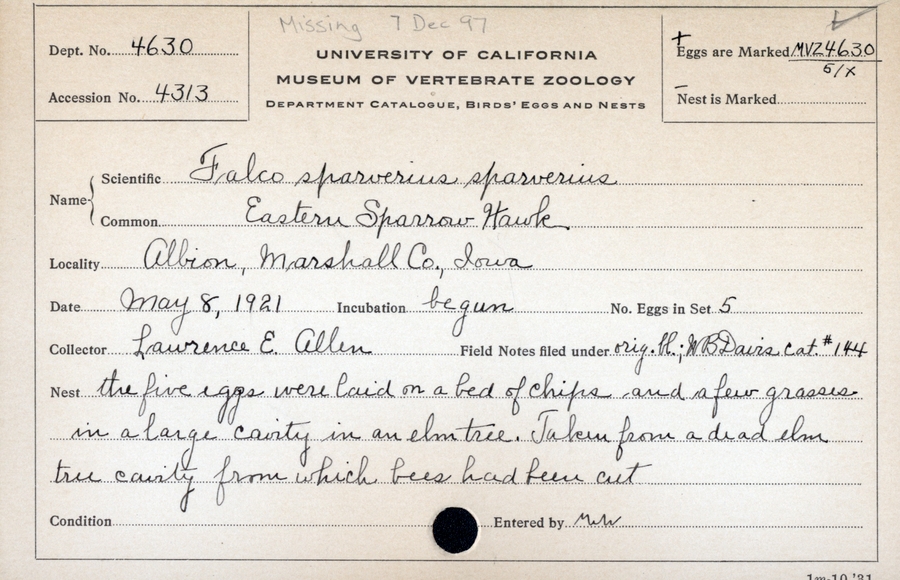 Missing 7 Dec 97
Dept. No. 4630
Accession No. 4313
UNIVERSITY OF CALIFORNIA
MUSEUM OF VERTEBRATE ZOOLOGY
DEPARTMENT CATALOGUE, BIRDS' EGGS AND NESTS
+
Eggs are Marked MVZ4630
5/x
–
Nest is Marked
Name
Scientific Falco sparverius sparverius
Common Eastern Sparrow Hawk
Locality Albion, Marshall Co., Iowa
Date May 8, 1921 Incubation begun No. Eggs in Set 5
Collector Lawrence E. Allen Field Notes filed under orig. bl.; WBDavis cat. #144
Nest the five eggs were laid on a bed of chips and a few grasses
in a large cavity in an elm tree. Taken from a dead elm
tree cavity from which bees had been cut
Condition Entered by
1m-10,'31